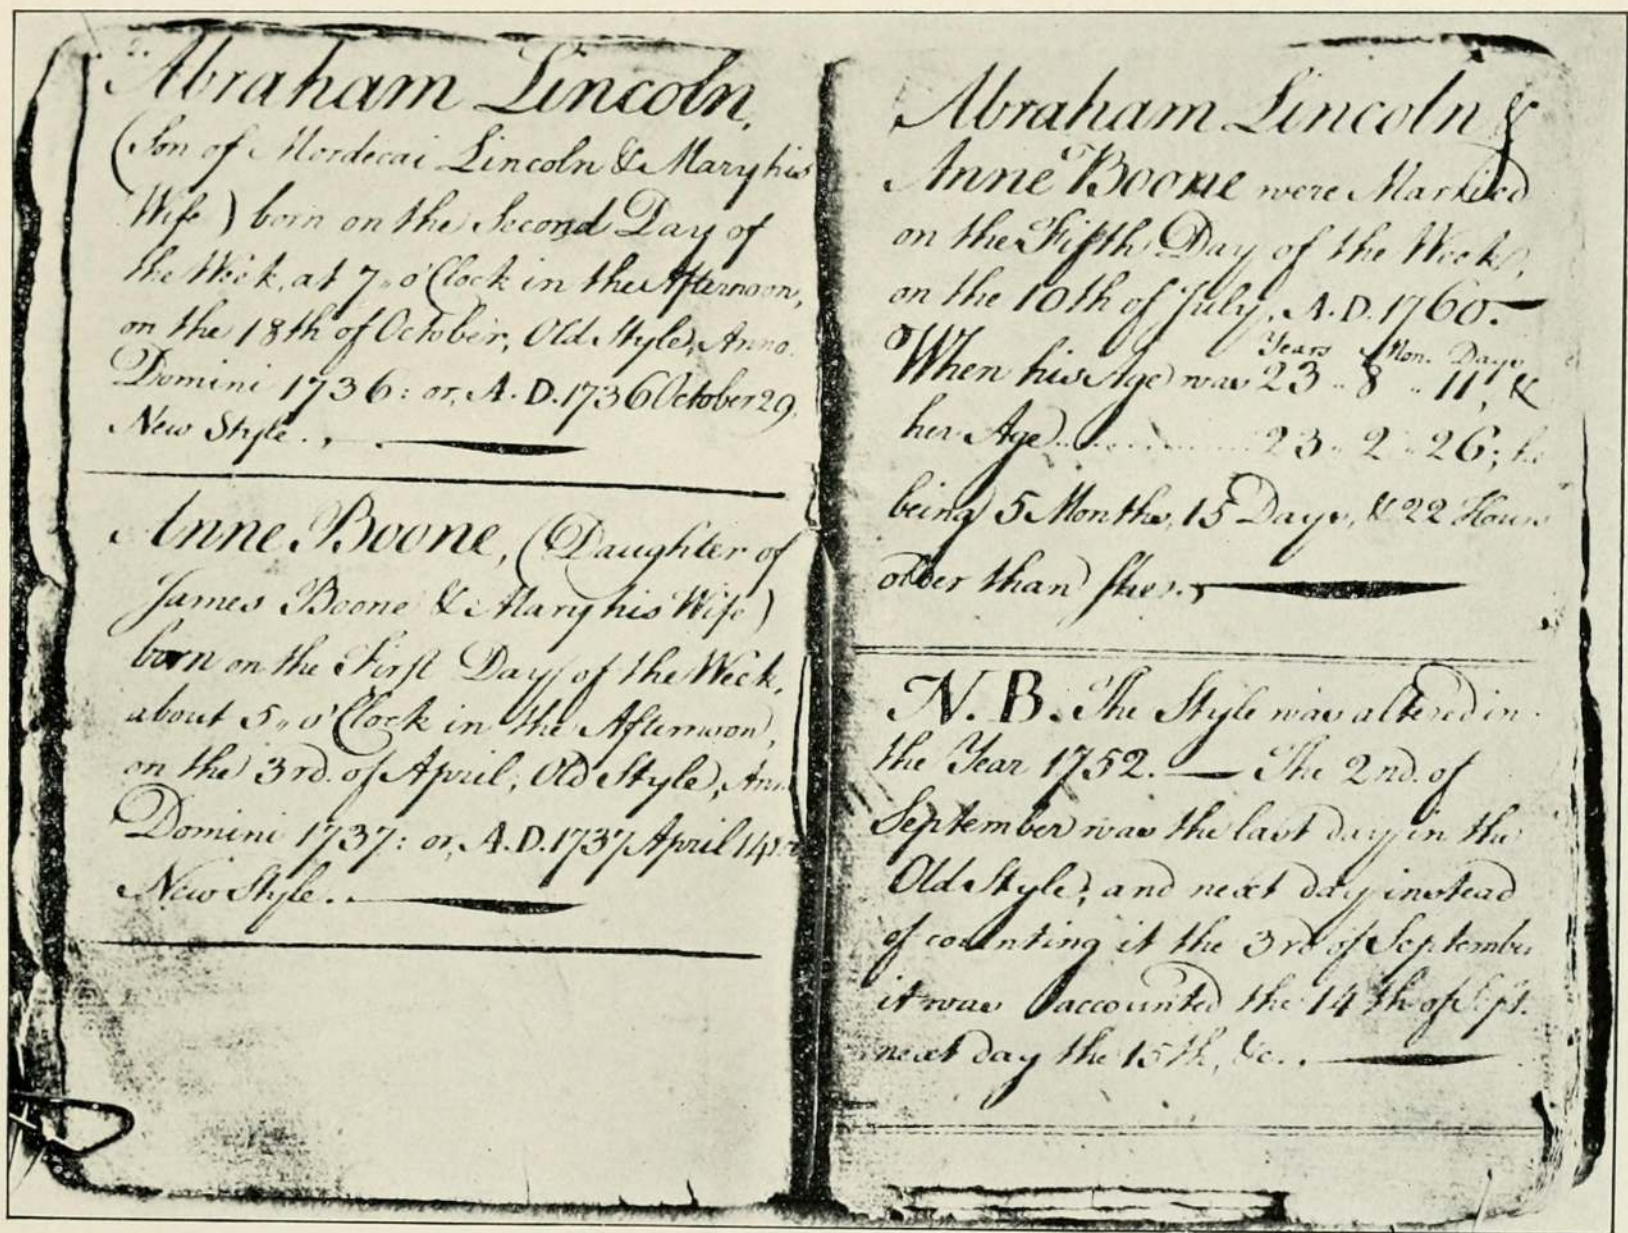 Abraham Lincoln,
(Son of Mordecai Lincoln & Mary his
Wife) born on the Second Day of
the Week, at 7 o'Clock in the Afternoon,
on the 18th of October, Old Style, Anno
Domini 1736: or, A.D. 1736 October 29,
New Style.
Anne Boone, (Daughter of
James Boone & Mary his Wife)
born on the First Day of the Week,
about 5 o'Clock in the Afternoon,
on the 3rd. of April, Old Style, Ann
Domini 1737: or, A.D. 1737 April 14
New Style.
Abraham Lincoln &
Anne Boone were Married
on the Fifth Day of the Week,
on the 10th of July, A.D. 1760.
Years Mon. Days
When his Age was 23 .. 8 .. 11, &
her Age ............ 23 .. 2 .. 26; he
being 5 Months, 15 Days, & 22 Hours
older than she.
N.B. The Style was altered in
the Year 1752. — The 2nd. of
September was the last day in the
Old Style; and next day instead
of counting it the 3rd of September
it was accounted the 14th of Sept.
next day the 15th, &c.